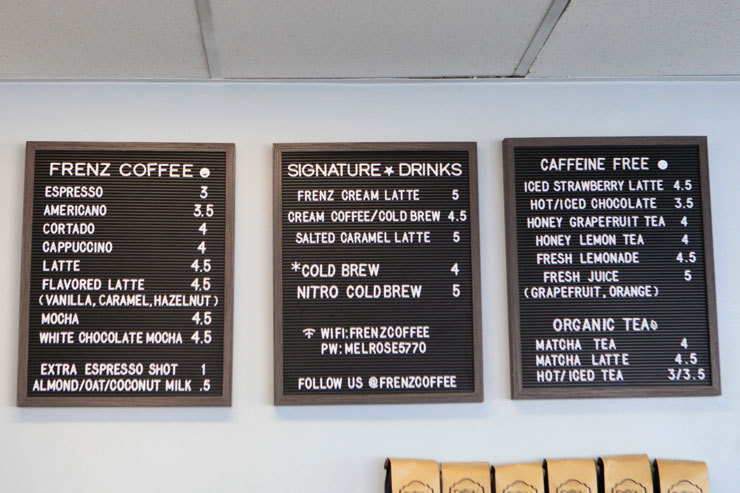 FRENZ COFFEE
ESPRESSO 3
AMERICANO 3.5
CORTADO 4
CAPPUCCINO 4
LATTE 4.5
FLAVORED LATTE 4.5
(VANILLA, CARAMEL, HAZELNUT)
MOCHA 4.5
WHITE CHOCOLATE MOCHA 4.5
EXTRA ESPRESSO SHOT 1
ALMOND/OAT/COCONUT MILK .5
SIGNATURE ★ DRINKS
FRENZ CREAM LATTE 5
CREAM COFFEE/COLD BREW 4.5
SALTED CARAMEL LATTE 5
*COLD BREW 4
NITRO COLD BREW 5
WIFI: FRENZCOFFEE
PW: MELROSE5770
FOLLOW US @FRENZCOFFEE
CAFFEINE FREE
ICED STRAWBERRY LATTE 4.5
HOT/ICED CHOCOLATE 3.5
HONEY GRAPEFRUIT TEA 4
HONEY LEMON TEA 4
FRESH LEMONADE 4.5
FRESH JUICE 5
(GRAPEFRUIT, ORANGE)
ORGANIC TEA
MATCHA TEA 4
MATCHA LATTE 4.5
HOT/ICED TEA 3/3.5